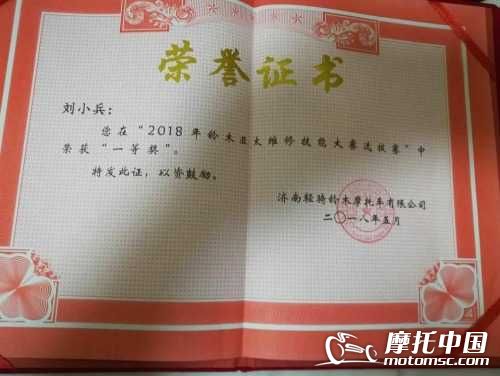 荣誉证书
刘小兵：
您在“2018年铃木亚太维修技能大赛选拔赛”中
荣获“一等奖”。
特发此证，以资鼓励。
济南轻骑铃木摩托车有限公司
二〇一八年五月
摩托中国
motomsc.com